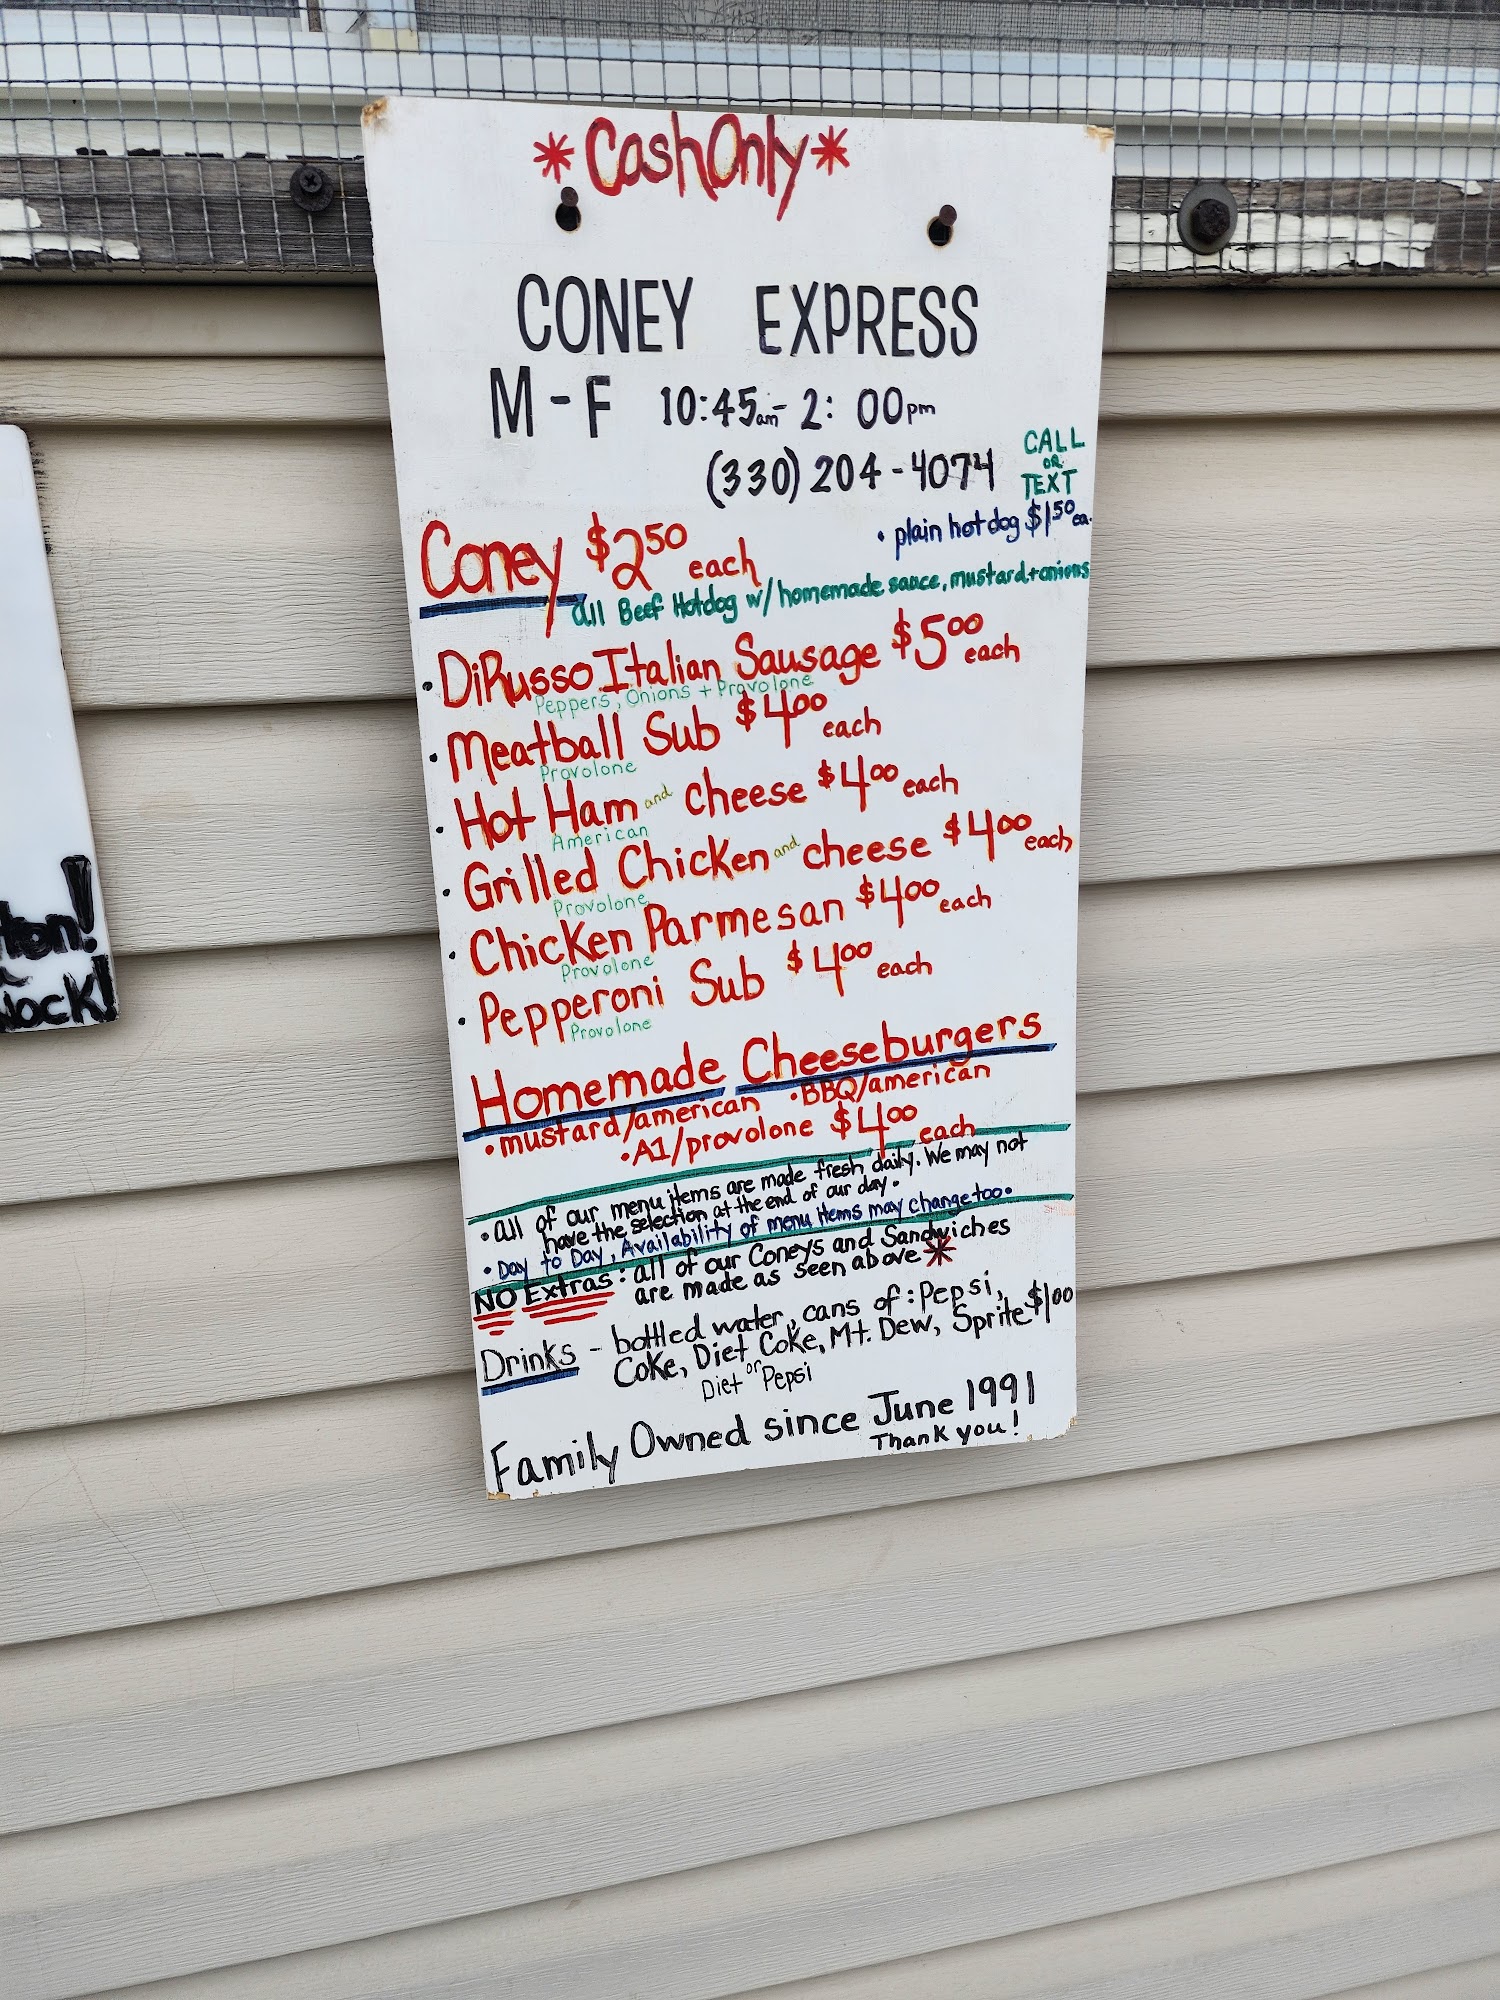 *Cash Only*
CONEY EXPRESS
M-F 10:45am- 2:00pm
(330) 204-4074 CALL OR TEXT
• plain hotdog $1.50 ea.
Coney $2.50 each
all Beef Hotdog w/ homemade sauce, mustard + onions
• DiRusso Italian Sausage $5.00 each
Peppers, Onions + Provolone
• Meatball Sub $4.00 each
Provolone
• Hot Ham and cheese $4.00 each
American
• Grilled Chicken and cheese $4.00 each
Provolone
• Chicken Parmesan $4.00 each
Provolone
• Pepperoni Sub $4.00 each
Provolone
Homemade Cheeseburgers
• mustard/american • BBQ/american
• A1/provolone $4.00 each
• all of our menu items are made fresh daily. We may not
have the selection at the end of our day.
• Day to Day, Availability of menu items may change too.
NO Extras: all of our Coneys and Sandwiches
are made as seen above *
Drinks - bottled water, cans of: Pepsi,
Coke, Diet Coke, Mt. Dew, Sprite $1.00
or
Diet Pepsi
Family Owned since June 1991
Thank you!